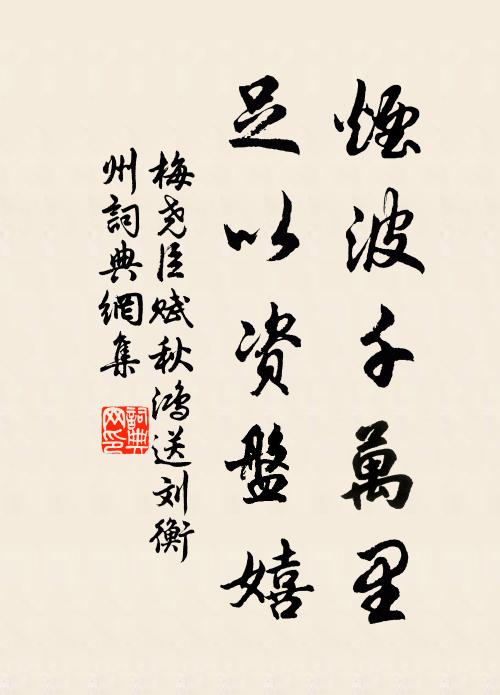 煙波千萬里
足以資盤嬉
梅尧臣赋秋鴻送刘衡
州詞典網集
詞典
网印